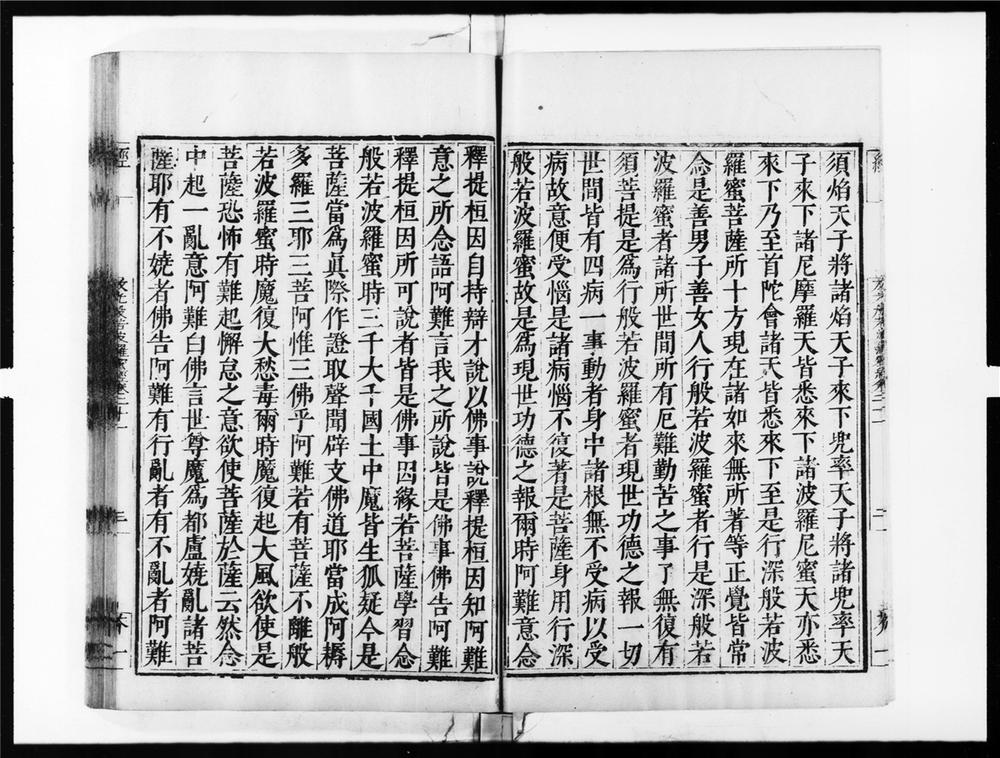 須焰天子將諸焰天子來下兜率天子將諸兜率天
子來下諸尼摩羅天皆悉來下諸波羅尼蜜天亦悉
來下乃至首陀會諸天皆悉來下至是行深般若波
羅蜜菩薩所十方現在諸如來無所著等正覺皆常
念是善男子善女人行般若波羅蜜者行是深般若
波羅蜜者諸所世間所有厄難勤苦之事了無復有
須菩提是爲行般若波羅蜜者現世功德之報一切
世間皆有四病一事動者身中諸根無不受病以受
病故意便受惱是諸病惱不復著是菩薩身用行深
般若波羅蜜故是爲現世功德之報爾時阿難意念
釋提桓因自持辯才說以佛事說釋提桓因知阿難
意之所念語阿難言我之所說皆是佛事佛告阿難
釋提桓因所可說者皆是佛事因緣若菩薩學習念
般若波羅蜜時三千大千國土中魔皆生狐疑今是
菩薩當爲眞際作證取聲聞辟支佛道耶當成阿耨
多羅三耶三菩阿惟三佛乎阿難若有菩薩不離般
若波羅蜜時魔復大愁毒爾時魔復起大風欲使是
菩薩恐怖有難起懈怠之意欲使菩薩於薩云然念
中起一亂意阿難白佛言世尊魔爲都盧嬈亂諸菩
薩耶有不嬈者佛告阿難有行亂者有不亂者阿難
經